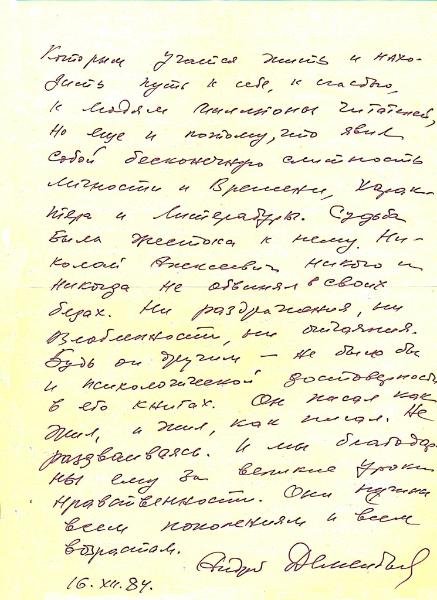 которым учатся жить и нахо-
дить путь к себе, к счастью,
к людям миллионы читателей,
Но еще и потому, что явил
собой бесконечную слитность
личности и Времени, Харак-
тера и Литературы. Судьба
была жестока к нему. Ни-
колай Алексеевич никого и
никогда не обвинял в своих
бедах. Ни раздражения, ни
озлобленности, ни отчаяния.
Будь он другим — не было бы
и психологической достоверности
в его книгах. Он писал как
жил, и жил, как писал. Не
раздваиваясь. И мы благодар-
ны ему за великие уроки
нравственности. Они нужны
всем поколениям и всем
возрастам.
Андрей Дементьев
16. XII. 84.